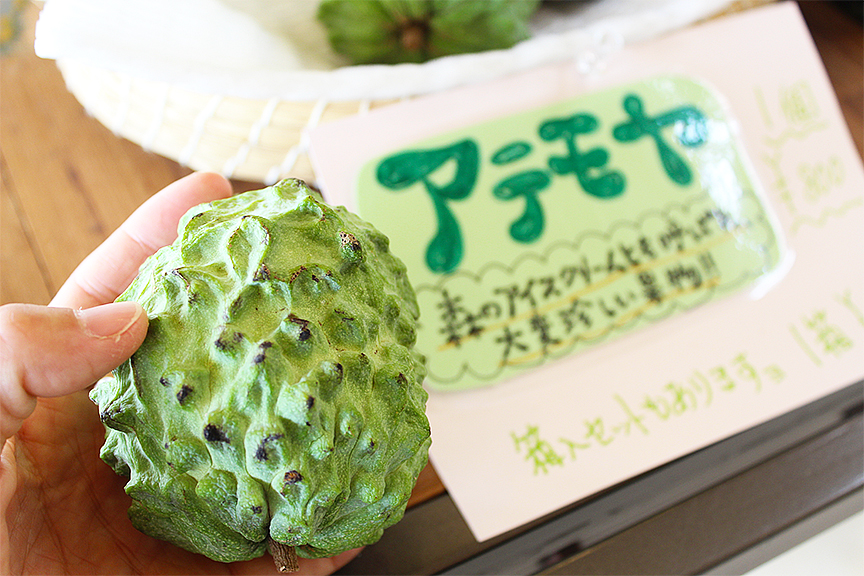 アテモヤ
森のアイスクリームとも呼ばれる
大変珍しい果物!!
1個
¥800
箱入セットもあります。
1箱¥